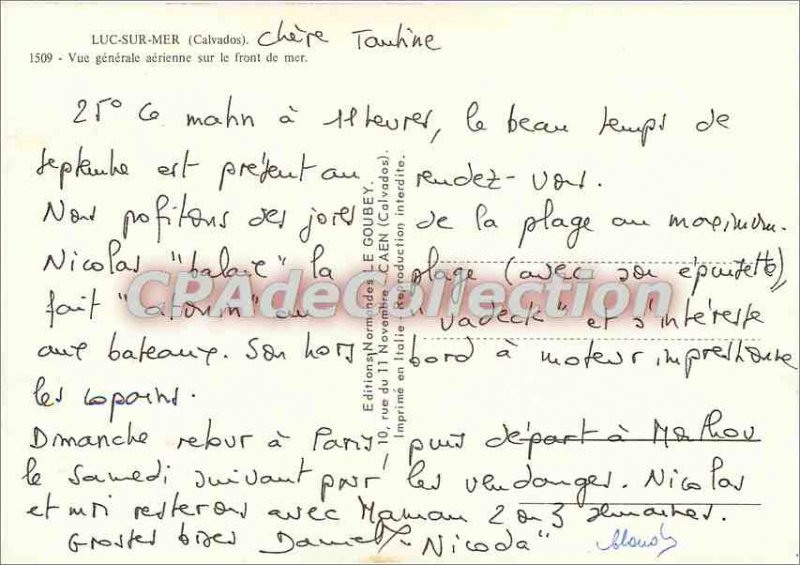 LUC-SUR-MER (Calvados). Chère Tantine
1509 - Vue générale aérienne sur le front de mer.
25° Ce matin à 11 heures, le beau temps de
septembre est présent au rendez-vous.
Nous profitons des joies de la plage au maximum.
Nicolas "balaie" la plage (avec son épuisette),
fait "atonin" au "vadeck" et s'intéresse
aux bateaux. Son hors bord à moteur impressionne
les copains.
Dimanche retour à Paris puis départ à
le samedi suivant pour les vendanges. Nicolas
et moi resterons avec Maman 2 ou 3 semaines.
Grosses bises Daniel "Nicoda"
Editions Normandes LE GOUBEY.
10, rue du 11 Novembre - CAEN (Calvados).
Imprimé en Italie - Reproduction interdite.
CPAdeCollection